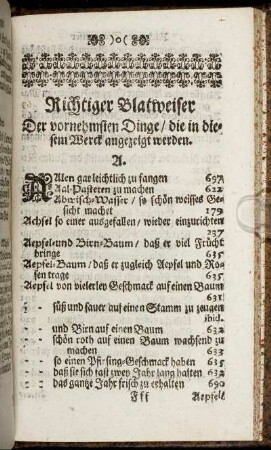 Richtiger Blatweiser
Der vornehmsten Dinge / die in die-
sem Werck angezeigt werden.
A.
Aalen gar leichtlich zu fangen 697
Aal-Pasteten zu machen 622
Abwisch-Wasser / so schön weisses Ge-
sicht machet 179
Achsel so einer ausgefallen / wieder einzurichten
237
Aepfel-und Birn-Baum / daß er viel Frücht
bringe 635
Aepfel-Baum / daß er zugleich Aepfel und Ro-
sen trage 635
Aepfel von vielerley Geschmack auf einen Baum
631
- - süß und sauer auf einen Stamm zu zeugen
ibid.
- - und Birn auf einen Baum 632
- - schön roth auf einen Baum wachsend zu
machen 633
- - so einen Pfirsing-Geschmack haben 635
- - daß sie sich fast zwey Jahr lang halten 632
- - das gantze Jahr frisch zu erhalten 690
Fff Aepfel-